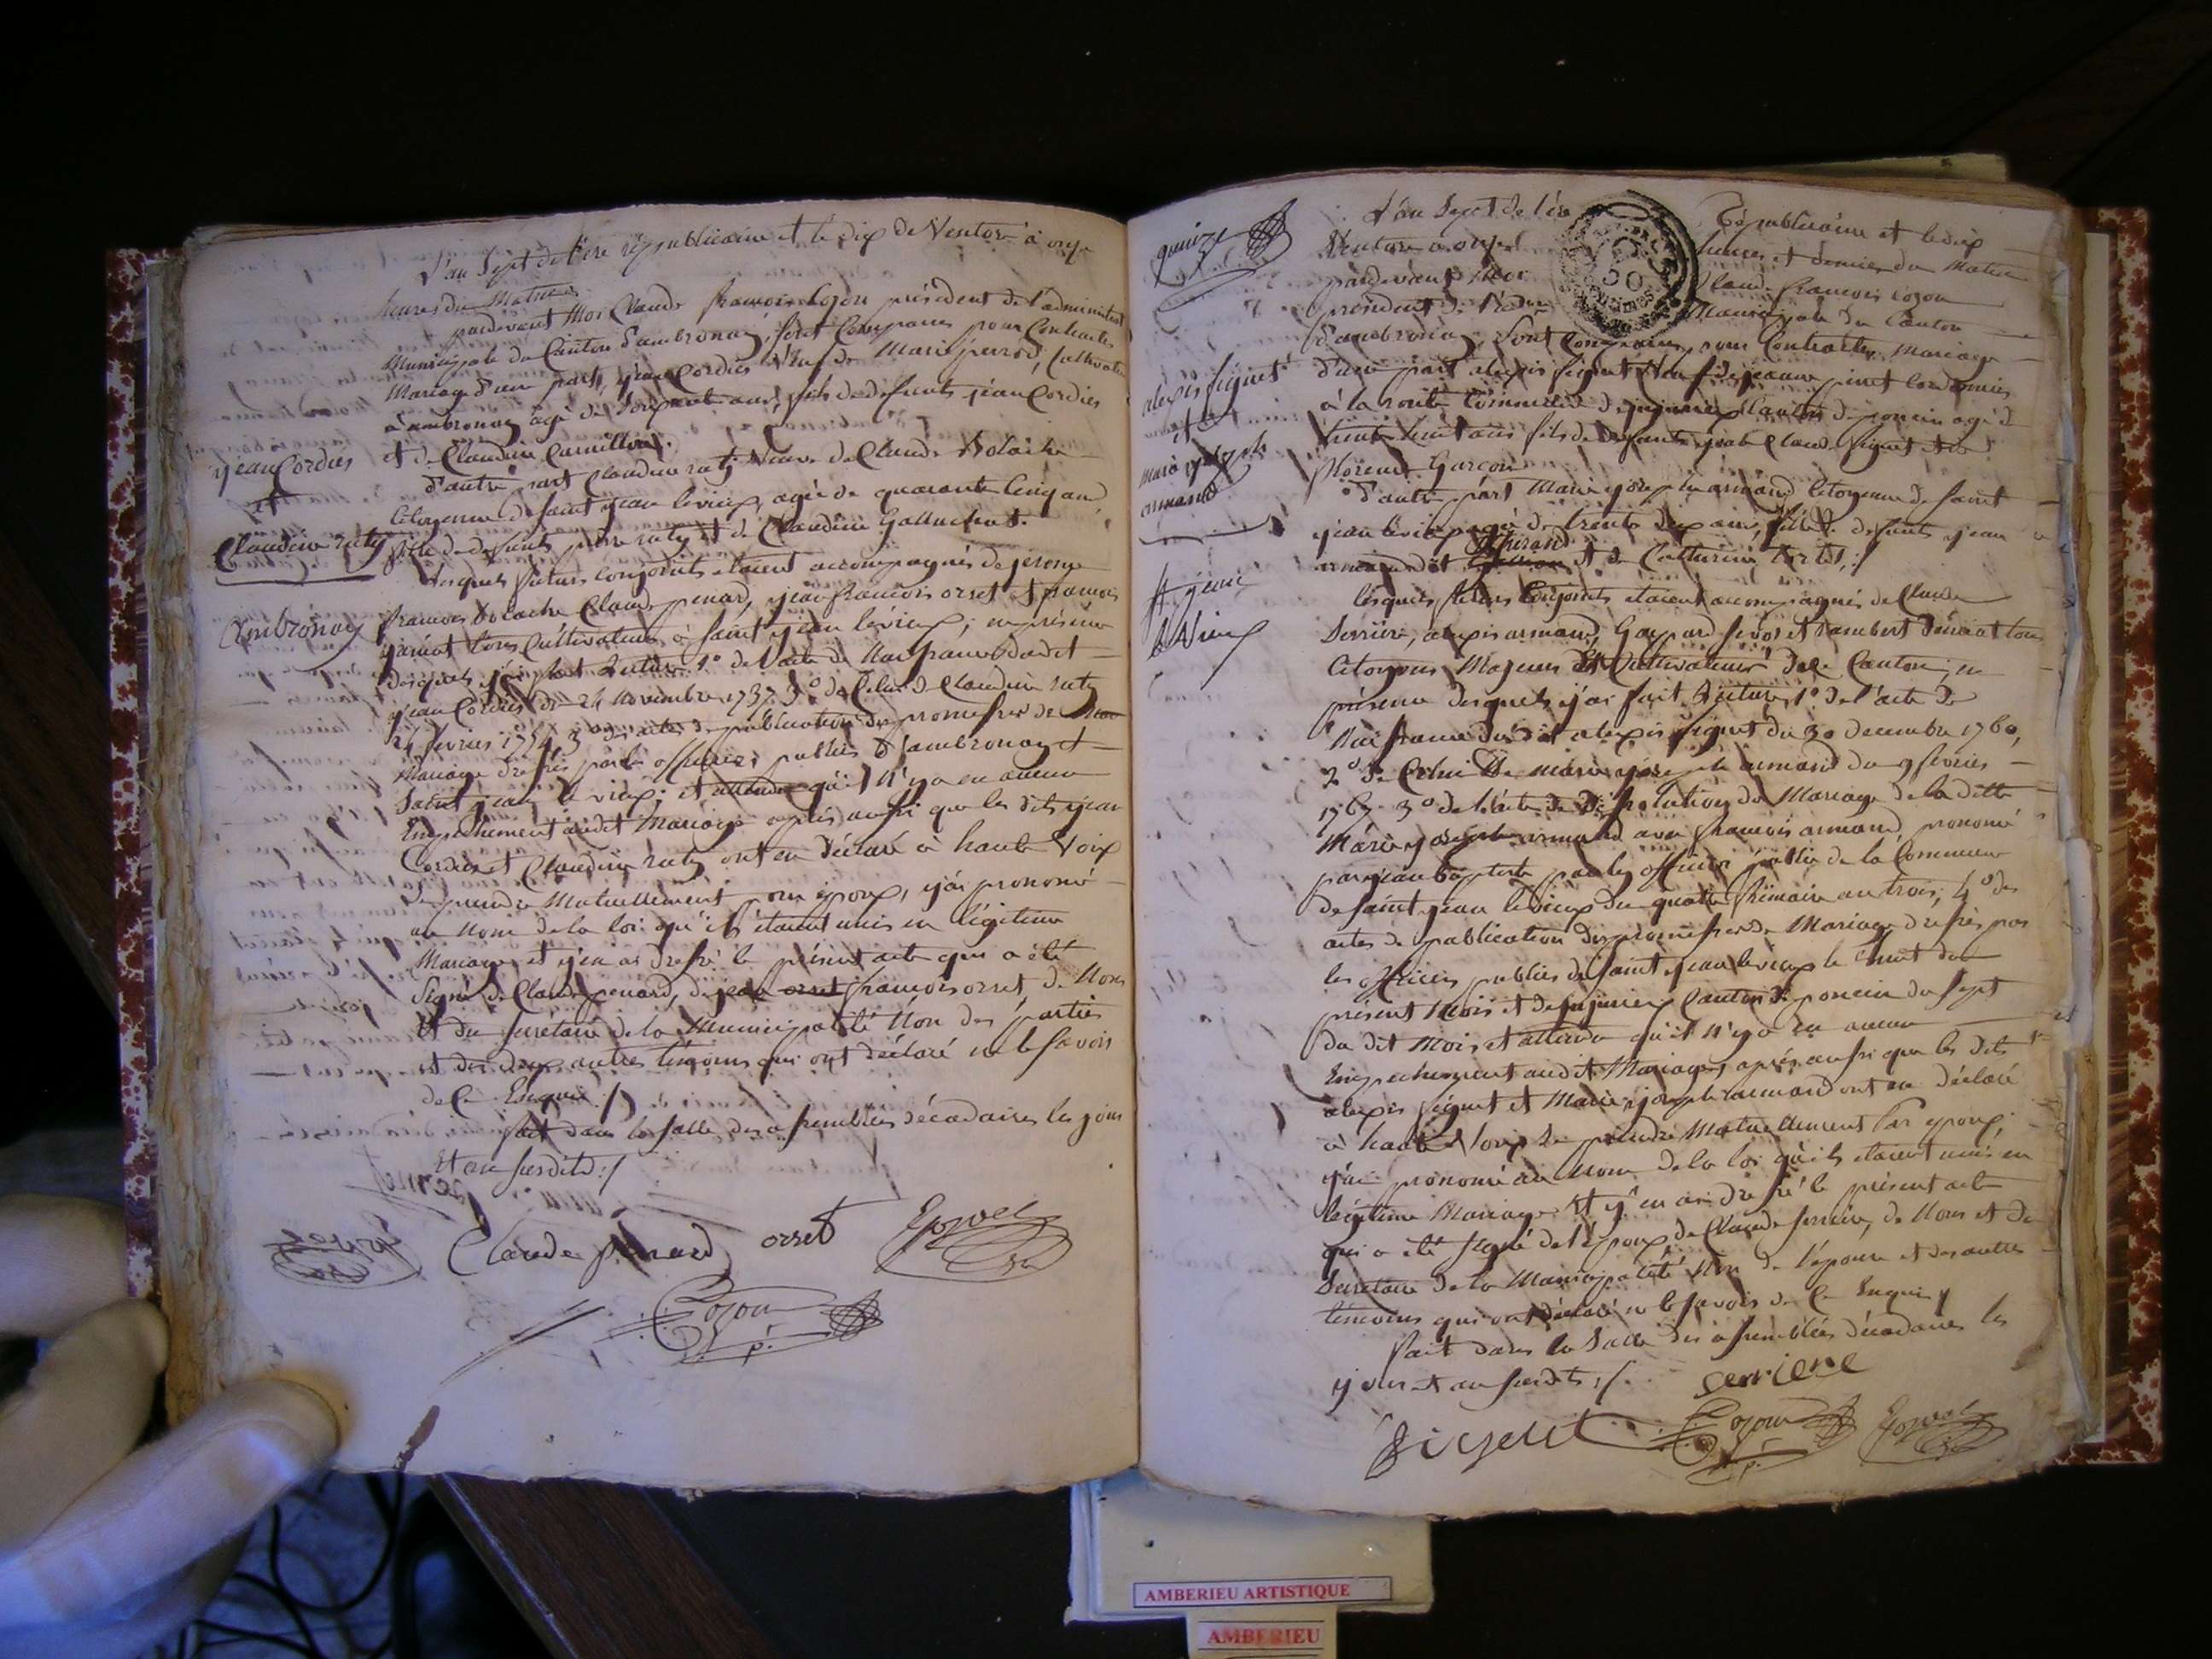 L'an Sept de l'Ere républicaine et le dix de Ventose à onze
heures du Matin
pardevant Moi Claude françois Cozon président de l'administration
Municipale du Canton d'ambronay, sont Comparus pour Contracter
Mariage d'une part, jean Cordier Veuf de Marie perrod, Cultivateur
à ambronay agé de Soixante ans, fils de defunts jean Cordier
et de Claudine
d'autre part Claudine ruty Veuve de Claude Bolache
Citoyenne de Saint jean le vieux, agée de quarante Cinq ans,
fille de defunts pierre ruty et de Claudine
Lesquels futurs conjoints etaient accompagnés de jerome
françois Bolache Claude penard, jean françois orset et françois
tous Cultivateurs à Saint jean le vieux, en présence
desquels j'ai fait Lecture 1° de l'acte de Naissance dudit
jean Cordier du 24 Novembre 1737 2° de Celui de Claudine ruty
24 fevrier 1754 3° des actes de publication des promesses de
Mariage dressés par les officiers publics d'ambronay et
Saint jean le vieux; et attendu qu'il N'y a eu aucun
Empechement audit Mariage après aussi que les dits jean
Cordier et Claudine ruty ont eu déclaré à haute Voix
Se prendre Mutuellement pour époux, j'ai prononcé
au Nom de la loi qu'ils étaient unis en légitime
Mariage et j'en ai dressé le présent acte qui a été
Signé de Claude penard, de jean orset françois orset, de Nous
et du Secrétaire de la Municipalité Non des parties
et des deux autres témoins qui ont déclaré ne le savoir
de ce Enquis ./.
fait dans la Salle des assemblées décadaires les jour
et an susdits ./.
jean Cordier
et
Claudine ruty
Ambronay
Claude penard orset
Cozon
p.
quinze
L'an Sept de l'ère Républicaine et le dix
Ventose à onze heures et demies du Matin
pardevant Moi Claude françois cozon
président de l'adm Municipale du Canton
d'ambronay, Sont Comparus pour Contracter Mariage
d'une part alexis figuet Veuf de jeanne pinet Cordonnier
à la route Commune de jujurieux Canton de poncin agé de
trente huit ans fils de defunts Claude figuet et de
Garçon
d'autre part Marie joseph armand Citoyenne de Saint
jean le vieux agée de trente deux ans, fille de defunts jean
armand dit et de Catherine ./.
lesquels futurs Conjoints etaient accompagnés de Claude
Serriere, alexis armand, Gaspard et rambert tous
Citoyens Majeurs et Cultivateurs de ce Canton, en
présence desquels j'ai fait Lecture 1° de l'acte de
Naissance du dit alexis figuet du 30 decembre 1760,
2° de Celui de marie joseph armand du 9 fevrier
1767 3° de l'acte de Dissolution du Mariage de la ditte
Marie joseph armand avec françois armand, prononcé
par jean Baptiste officier public de la Commune
de Saint jean le vieux du quatre frimaire an trois, 4° des
actes de publication des promesses de Mariage dressés par
les officiers publics de Saint jean le vieux le huit du
présent Mois et de jujurieux Canton de poncin du Sept
du dit Mois et attendu qu'il N'y a eu aucun
Empechement audit Mariage, après aussi que les dits
alexis figuet et Marie joseph armand ont eu déclaré
à haute Voix Se prendre Mutuellement Par epoux,
j'ai prononcé au Nom de la loi qu'ils etaient unis en
légitime Mariage et j'en ai dressé le présent acte
qui a été Signé de l'époux de Claude Serriere, de Nous et du
Secretaire de la Municipalité Non de l'épouse et des autres
témoins qui ont déclaré ne le savoir de ce Enquis ./.
fait dans la Salle des assemblées décadaires les
jour et an susdits ./.
alexis figuet
et
marie joseph
armand
St jean
le Vieux
serriere
Cozon
p.
AMBERIEU ARTISTIQUE
AMBERIEU